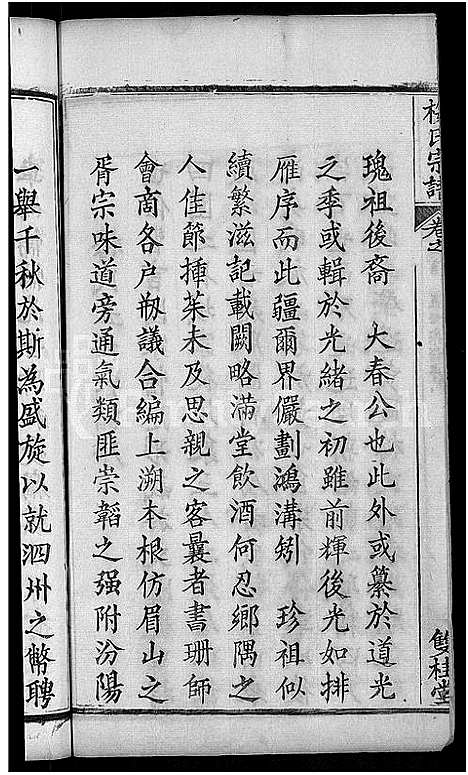 瑰祖後裔　大春公也此外或纂於道光
之季或輯於光緒之初雖前輝後光如排
雁序而此疆爾界儼劃鴻溝矧　珍祖似
續繁滋記載闕略滿堂飲酒何忍鄉隅之
人佳節揷茱未及思親之客曩者書珊師
會商各户剏議合編上溯本根仿眉山之
胥宗味道旁通氣類匪崇韜之强附汾陽
一舉千秋於斯為盛旋以就泗州之幣聘
氏宗譜
卷之
雙桂堂